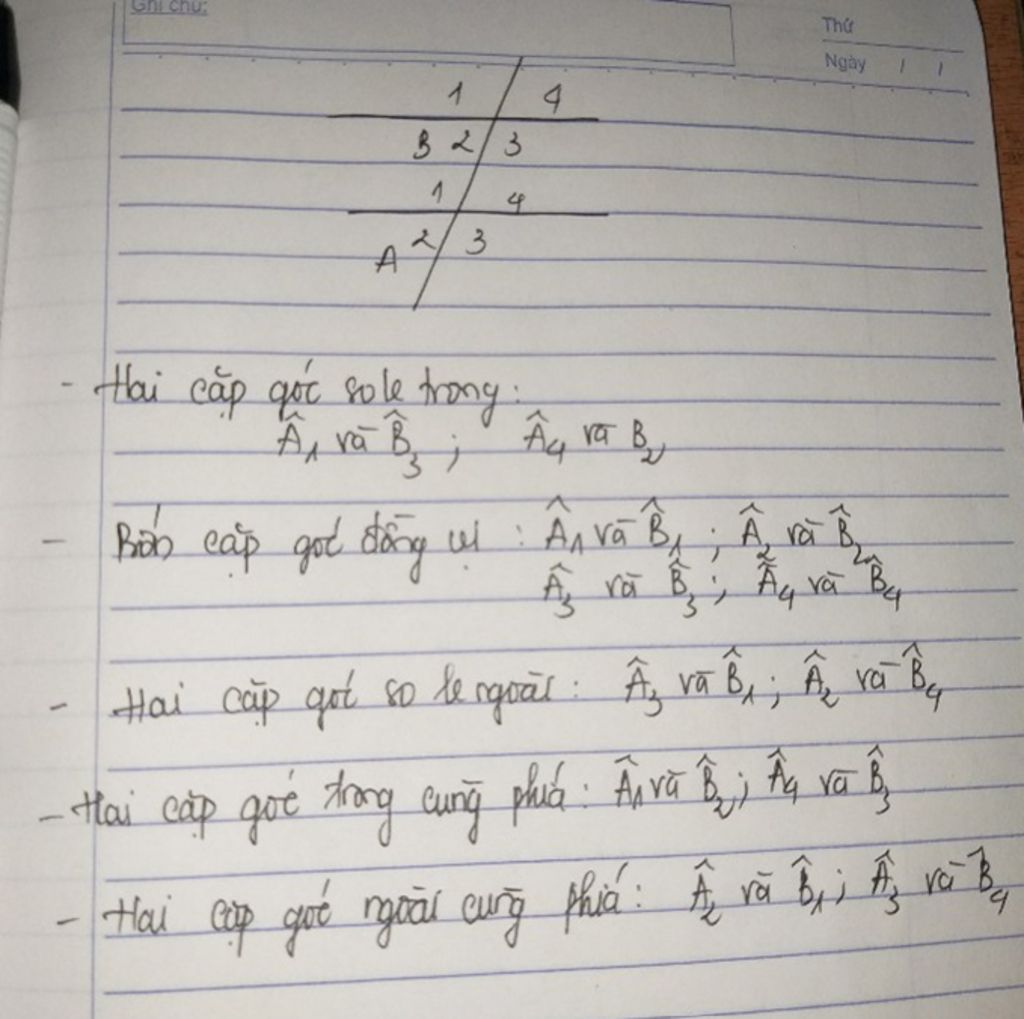 Ghi chú:
Thứ
Ngày / /
1 4
B 2 3
1 4
A 2 3
- Hai cặp góc so le trong:
Â₁ và B̂₃ ; Â₄ và B₂
- Bốn cặp góc đồng vị : Â₁ và B̂₁ ; Â₂ và B̂₂
Â₃ và B̂₃ ; Â₄ và B̂₄
- Hai cặp góc so le ngoài : Â₃ và B̂₁ ; Â₂ và B̂₄
- Hai cặp góc trong cùng phía : Â₁ và B̂₂ ; Â₄ và B̂₃
- Hai cặp góc ngoài cùng phía : Â₂ và B̂₁ ; Â₃ và B̂₄